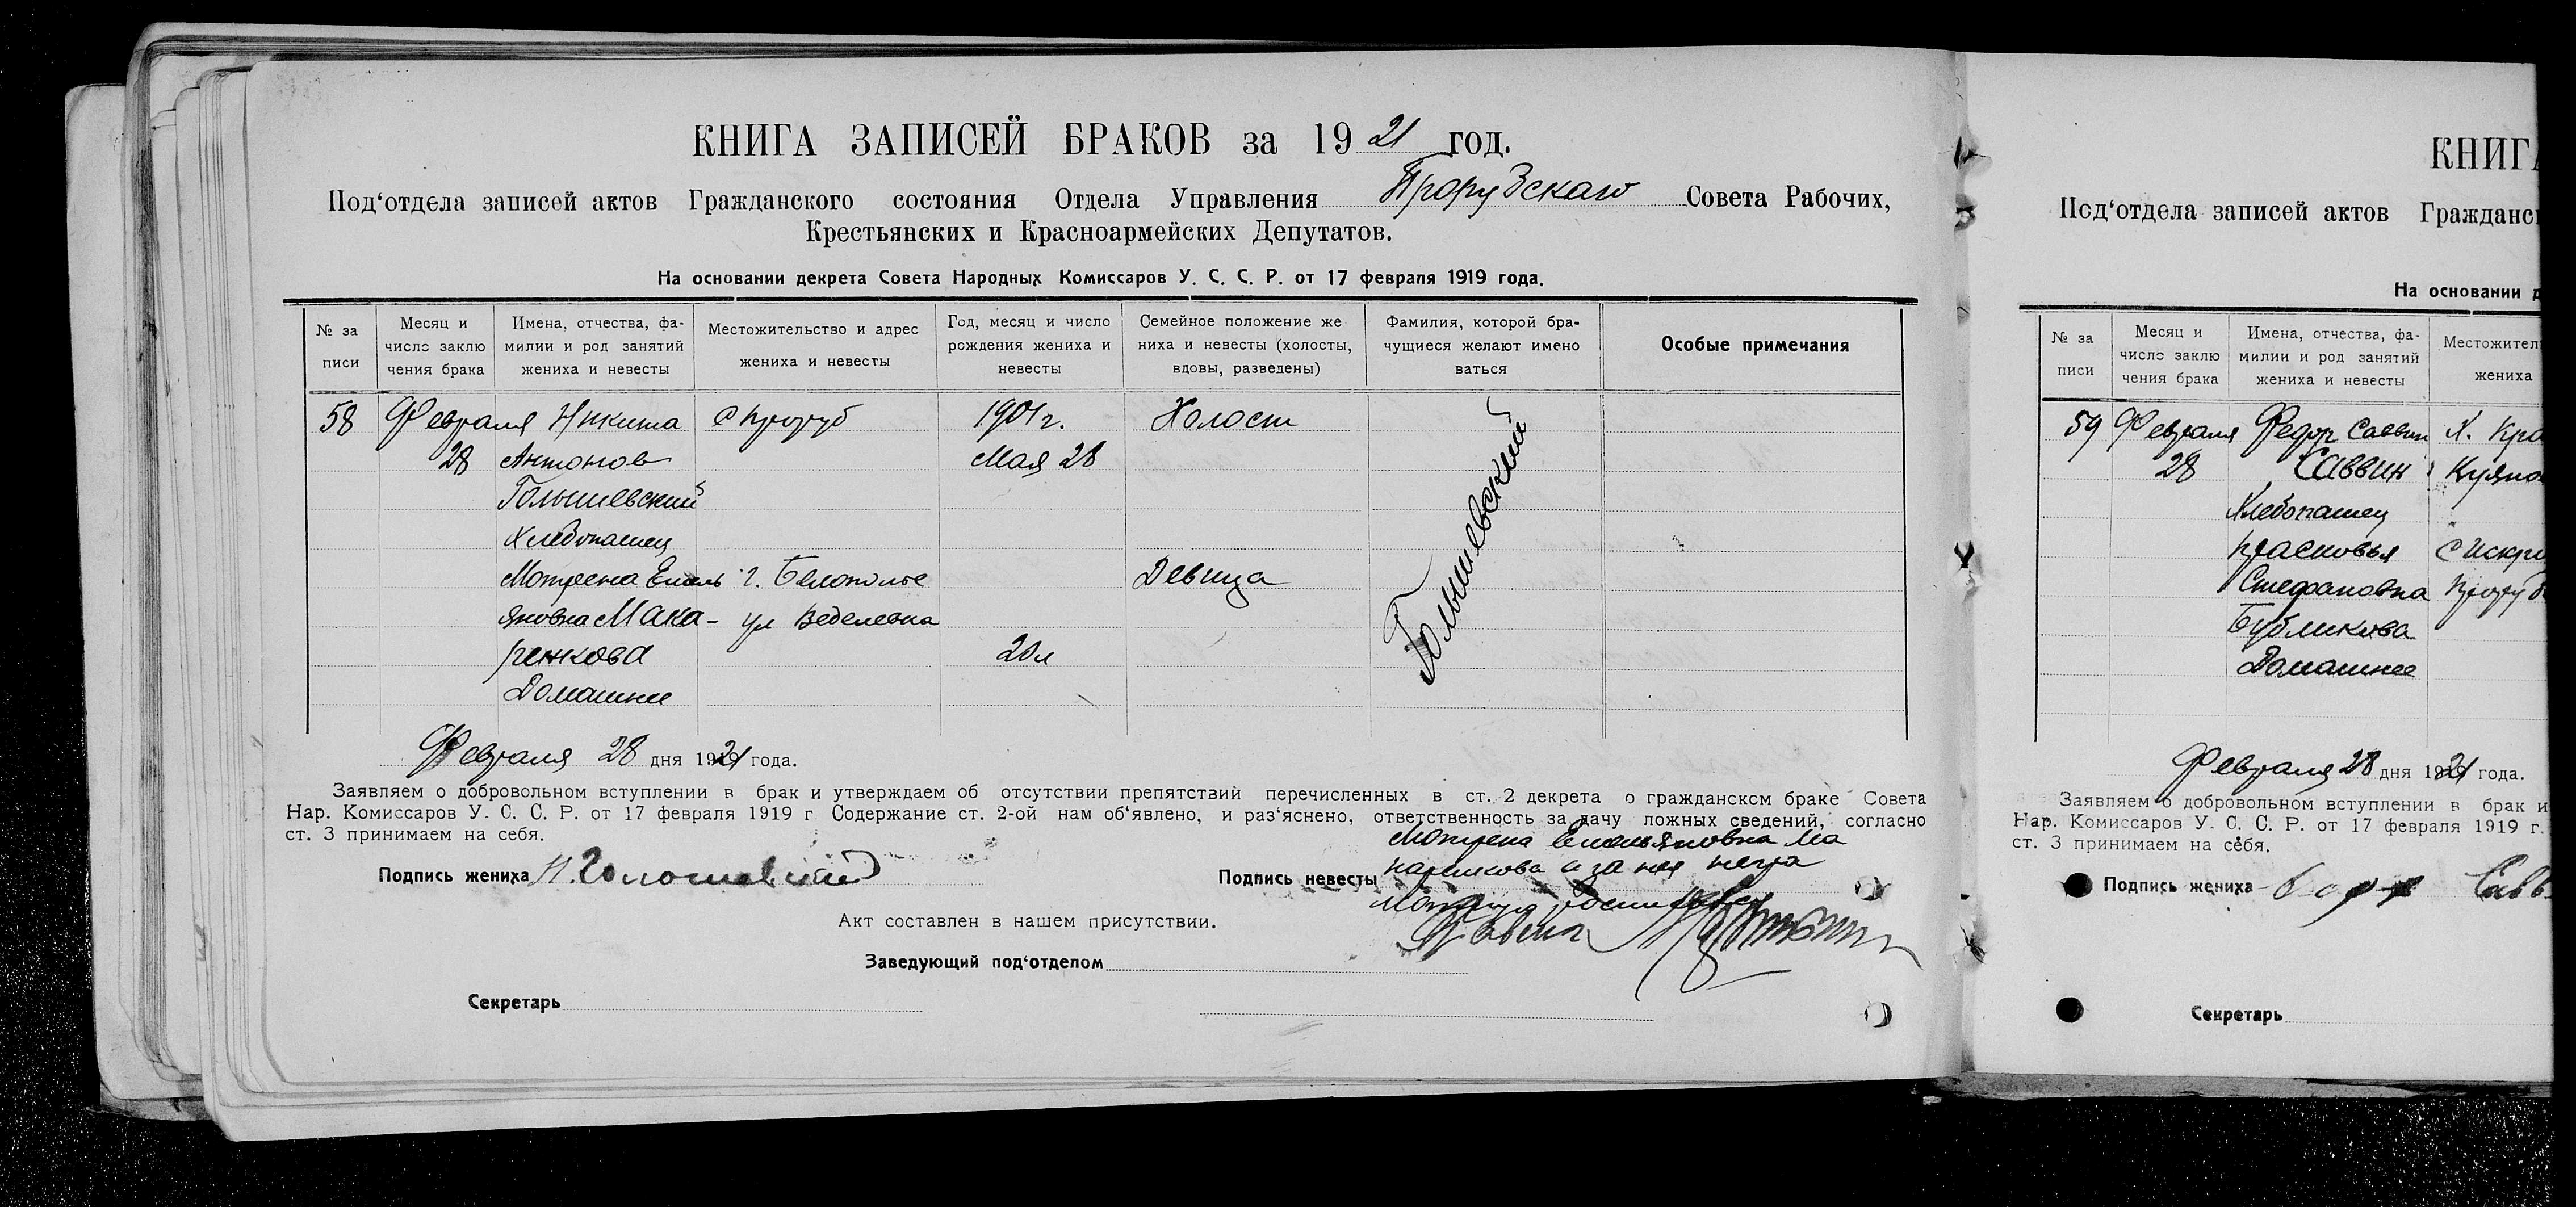 КНИГА ЗАПИСЕЙ БРАКОВ за 1921 год.
Под‘отдела записей актов Гражданского состояния Отдела Управления Прорубскаго Совета Рабочих,
Крестьянских и Красноармейских Депутатов.
На основании декрета Совета Народных Комиссаров У. С. С. Р. от 17 февраля 1919 года.
№ за писи
Месяц и число заклю чения брака
Имена, отчества, фа- милии и род занятий жениха и невесты
Местожительство и адрес жениха и невесты
Год, месяц и число рождения жениха и невесты
Семейное положение же ниха и невесты (холосты, вдовы, разведены)
Фамилия, которой бра- чущиеся желают имено ваться
Особые примечания
58 Февраля Никита с Проруб 1901 г. Холост
28 Антонов Мая 28
Голышевский
Хлебопашец
Мотрена Емель г. Белополье Девица
яновна Мака- ул Веделевка
ренкова 20 л
Домашнее
Голышевский
Февраля 28 дня 1921 года.
Заявляем о добровольном вступлении в брак и утверждаем об отсутствии препятствий перечисленных в ст. 2 декрета о гражданском браке Совета
Нар. Комиссаров У. С. С. Р. от 17 февраля 1919 г Содержание ст. 2-ой нам об‘явлено, и раз‘яснено, ответственность за дачу ложных сведений, согласно
ст. 3 принимаем на себя.
Подпись жениха
Подпись невесты Мотрена Емельяновна Ма
а за нея негра
Акт составлен в нашем присутствии.
Заведующий под‘отделом
Секретарь
КНИГА
Под‘отдела записей актов Гражданс
На основании д
№ за писи
Месяц и число заклю чения брака
Имена, отчества, фа- милии и род занятий жениха и невесты
Местожител жениха
59 Февраля Федор Саввин Х. Кра
28 Саввин
Хлебопашец
Прасковья с Искри
Стефановна Проруб
Бубликова
Домашнее
Февраля 28 дня 1921 года.
Заявляем о добровольном вступлении в брак и
Нар. Комиссаров У. С. С. Р. от 17 февраля 1919 г.
ст. 3 принимаем на себя.
Подпись жениха
Секретарь